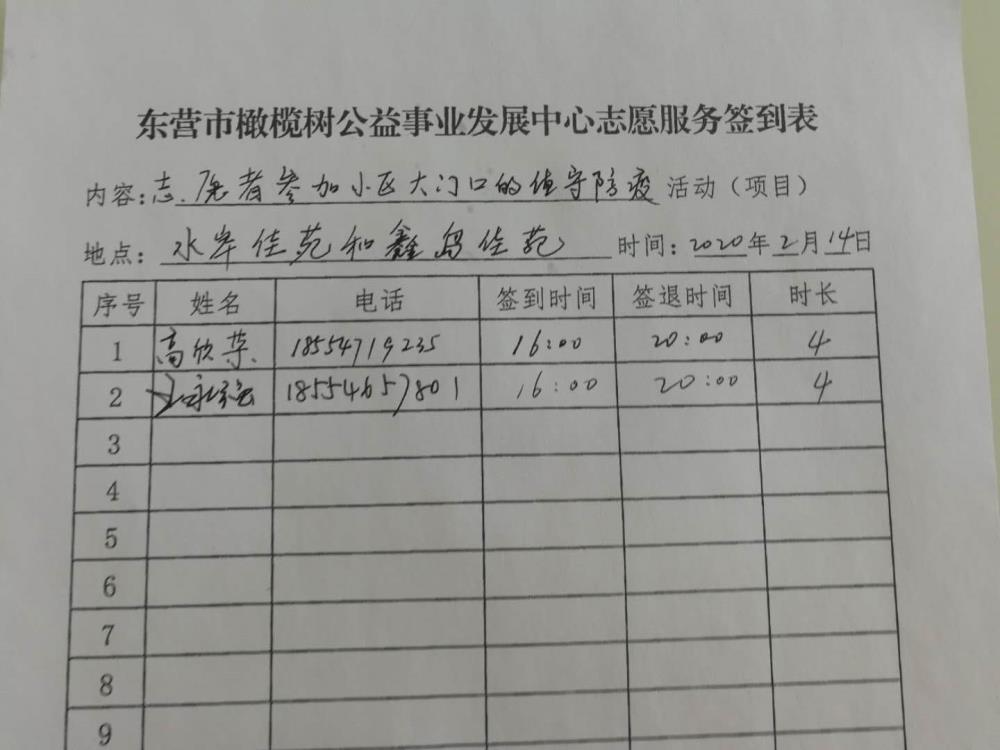 东营市橄榄树公益事业发展中心志愿服务签到表
内容:志愿者参加小区大门口的值守防疫活动（项目）
地点:水岸佳苑和鑫岛佳苑 时间:2020年2月14日
序号 姓名 电话 签到时间 签退时间 时长
1 高欣荣 18554719235 16:00 20:00 4
2 王永强 18554657801 16:00 20:00 4
3
4
5
6
7
8
9